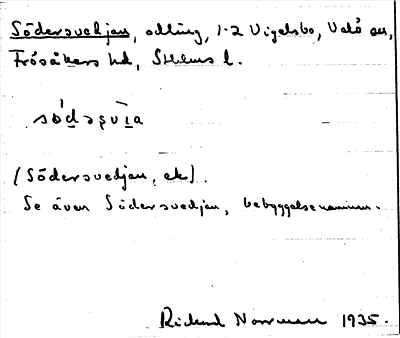 Södersvedjan, odling, 1-2 Vigelsbo, Valö sn,
Frösåkers hd, Sthlms l.
sö́dəṣvī̀a
(Södersvedjan, ek).
Se även Södersvedjan, bebyggelsenamn.
Rickard Norrman 1935.